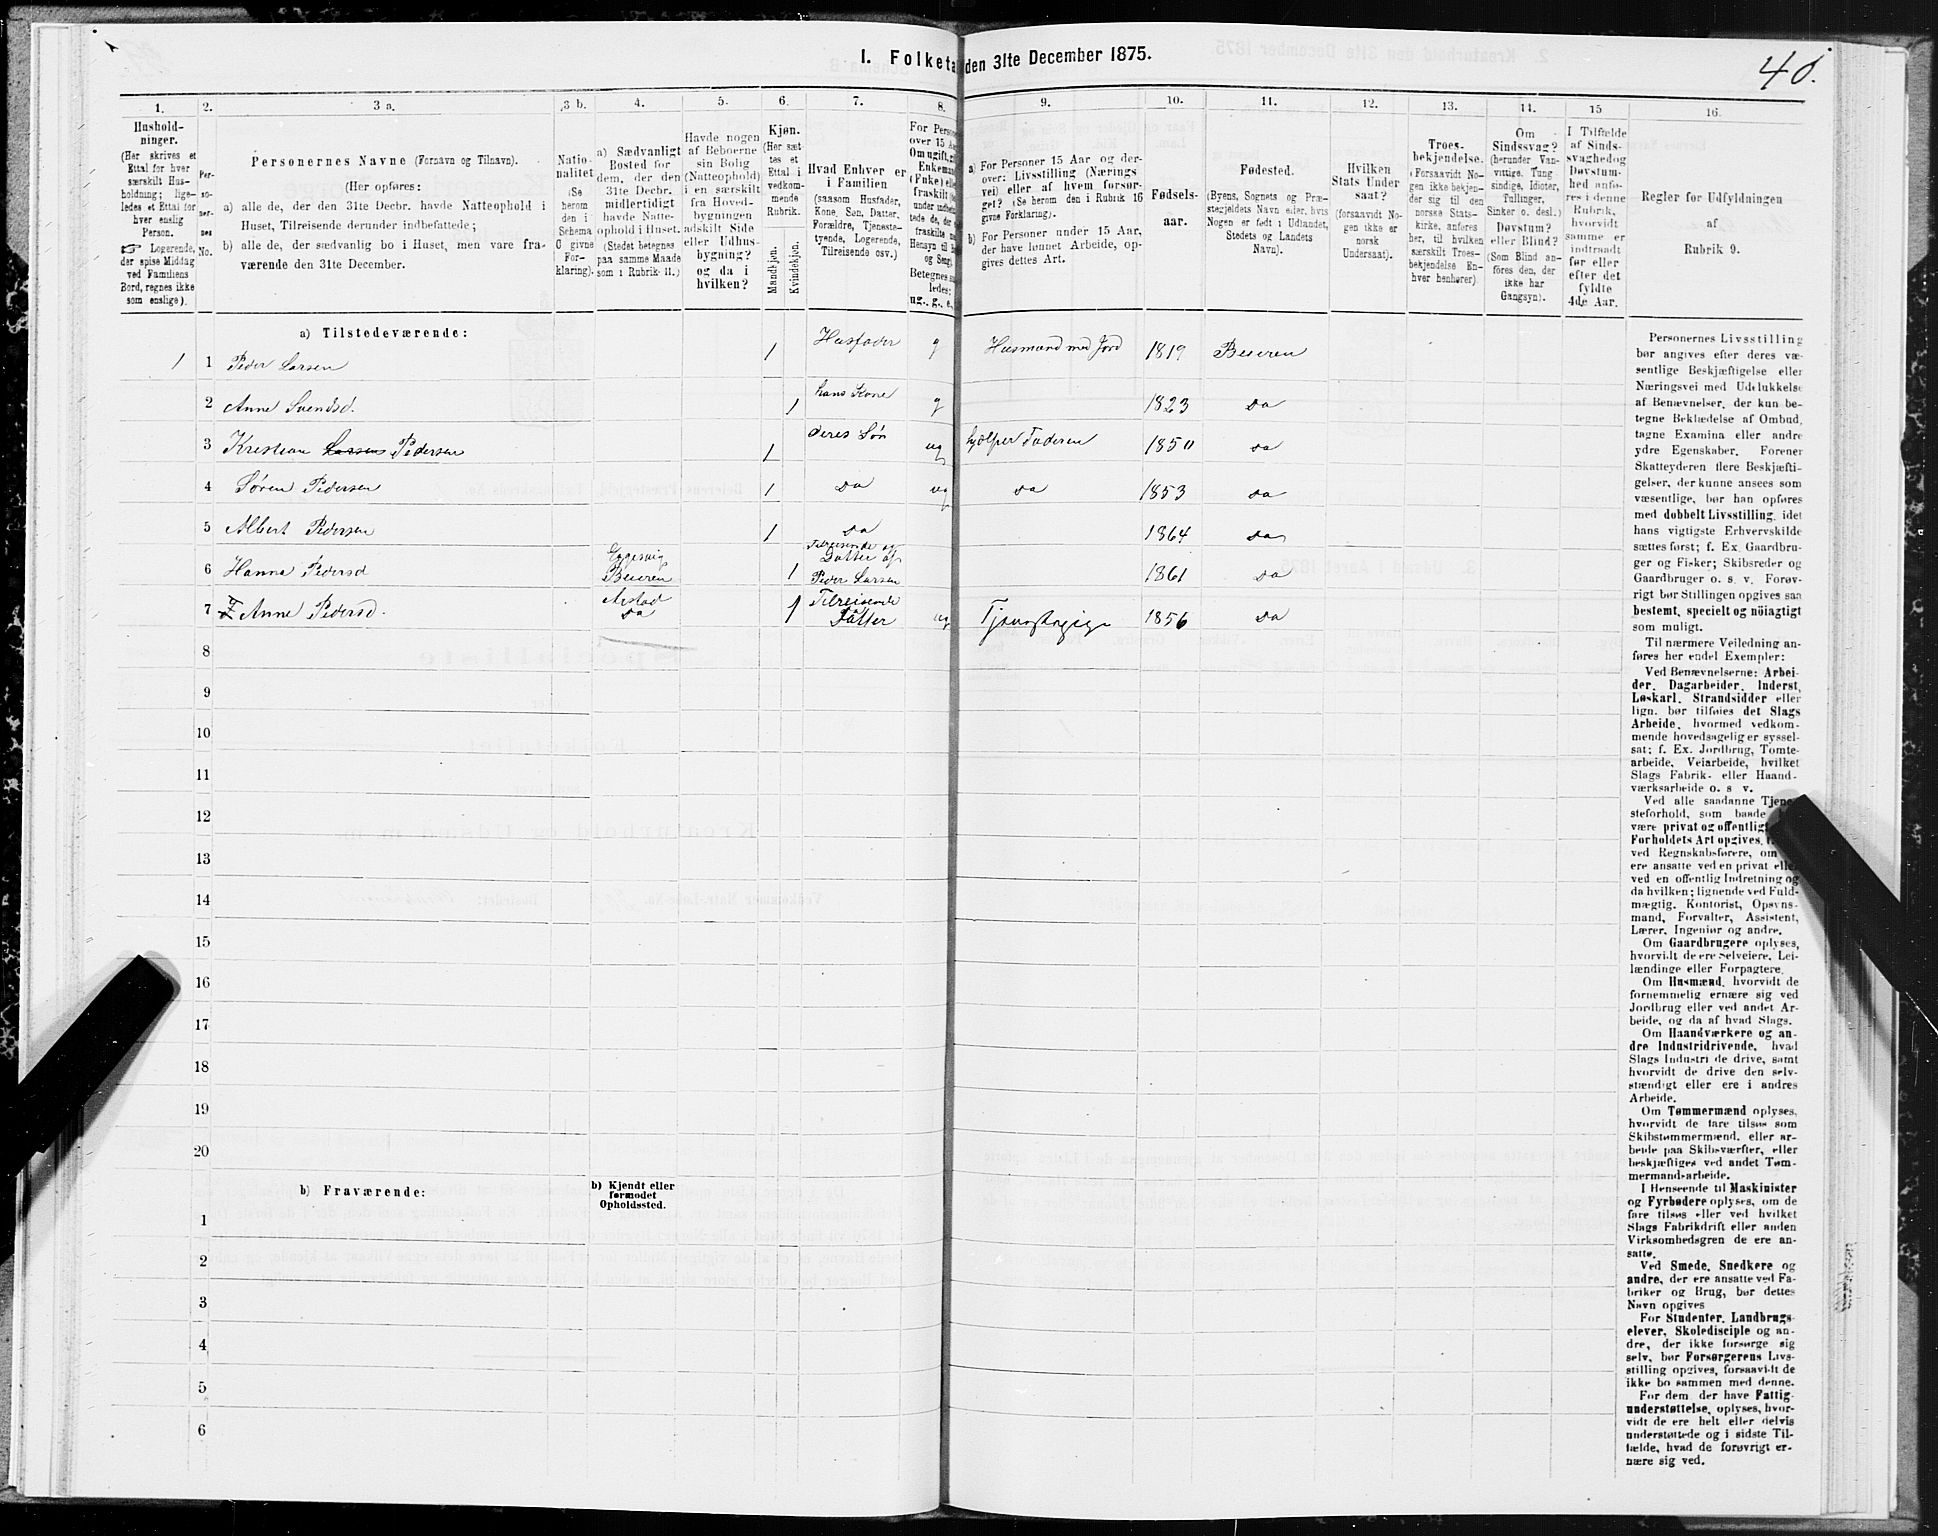 I. Folketa den 31te December 1875.
40.
1. 2. 3 a. 3 b. 4. 5. 6. 7. 8. 9. 10. 11. 12. 13. 14. 15 16.
Hushold-
ninger.
(Her skrives et
Ettal for hver
særskilt Hus-
holdning; lige-
ledes et Ettal for
hver enslig
Person.
☞ Logerende,
der spise Middag
ved Familiens
Bord, regnes ikke
som enslige).
Per-
so-
ner-
nes
No.
Personernes Navne (Fornavn og Tilnavn).
(Her opføres:
a) alle de, der den 31te Decbr. havde Natteophold i
Huset, Tilreisende derunder indbefattede;
b) alle de, der sædvanlig bo i Huset, men vare fra-
værende den 31te December.
Natio-
nalitet
(Se
herom
den i
Schema
C givne
For-
klaring).
a) Sædvanligt
Bosted for
dem, der den
31te Decbr.
midlertidigt
havde Natte-
ophold i Huset.
(Stedet betegnes
paa samme Maade
som i Rubrik 11.)
Havde nogen
af Beboerne
sin Bolig
(Natteophold)
i en særskilt
fra Hoved-
bygningen
adskilt Side
eller Udhus-
bygning?
og da i
hvilken?
Kjøn.
(Her sæt-
tes et
Ettal i
vedkom-
mende
Rubrik.
Mandkjøn.
Kvindekjøn.
Hvad Enhver er
i Familien
(saasom Husfader,
Kone, Søn, Datter,
Forældre, Tjeneste-
tyende, Logerende,
Tilreisende osv.)
For Person
over 15 Aa
Om ugift, g
Enkeman
(Enke) ell
fraskilt
under indbe
tede de, der
fraskilte
Hensyn til b
og Seng).
Betegnes s
ledes:
ug., g., e.,
a) For Personer 15 Aar og der-
over: Livsstilling (Nærings
vei) eller af hvem forsør-
get? (Se herom den i Rubrik 16
givne Forklaring).
b) For Personer under 15 Aar,
der have lønnet Arbeide, op-
gives dettes Art.
Fødsels-
aar.
Fødested.
(Byens, Sognets og Præ-
stegjeldets Navn eller, hvis
Nogen er født i Udlandet,
Stedets og Landets
Navn).
Hvilken
Stats Under
saat?
(forsaavidt No-
gen ikke er
norsk
Undersaat).
Troes-
bekjendelse.
(Forsaavidt No-
gen ikke bekjen-
der sig til den
norske Stats-
kirke, anføres
her, til hvilken
særskilt Troes-
bekjendelse En-
hver henhører).
Om
Sindssvag?
(herunder Van-
vittige, Tung
sindige, Idioter,
Tullinger,
Sinker o. desl.)
Døvstum?
eller Blind?
(Som Blind an-
føres den, der
ikke har
Gangsyn).
I Tilfælde
af Sinds-
svaghed og
Døvstum-
hed anfø-
res i denne
Rubrik,
hvorvidt
samme er
indtraadt
før eller
efter det
fyldte
4de Aar.
Regler for Udfyldningen
af
Rubrik 9.
a) Tilstedeværende:
1 1 Peder Larsen 1 Husfader g Husmand med Jord 1819 Beieren
2 Anne Svendsd. 1 hans Kone g 1823 do
3 Kristian Larsen Pedersen 1 deres Søn ug hjælper Faderen 1850 do
4 Søren Pedersen 1 do ug do 1853 do
5 Albert Pedersen 1 do 1864 do
6 Hanna Pedersd Beieren 1 Tilreisende og Datter af Peder Larsen 1861 do
7 Anne Pedersd. Arstad do 1 Tilreisende Datter ug 1856 do
8
9
10
11
12
13
14
15
16
17
18
19
20
b) Fraværende:
b) Kjendt eller
formodet
Opholdssted.
1
2
3
4
5
6
Personernes Livsstilling
bør angives efter deres væ-
sentlige Beskjæftigelse eller
Næringsvei med Udelukkelse
af Benævnelser, der kun be-
tegne Beklædelse af Ombud,
tagne Examina eller andre
ydre Egenskaber. Forener
Skatteyderen flere Beskjæfti-
gelser, der kunne ansees som
væsentlige, bør han opføres
med dobbelt Livsstilling, idet
hans vigtigste Erhvervskilde
sættes først; f. Ex. Gaardbru-
ger og Fisker; Skibsreder og
Gaardbruger o. s. v. Forøv-
rigt bør Stillingen opgives saa
bestemt, specielt og nöiagtigt
som muligt.
Til nærmere Veiledning an-
føres her endel Exempler:
Ved Benævnelserne: Arbei-
der, Dagarbeider, Inderst,
Løskarl, Strandsidder eller
lign. bør tilføies det Slags
Arbeide, hvormed vedkom-
mende hovedsagelig er syssel-
sat; f. Ex. Jordbrug, Tomte-
arbeide, Veiarbeide, hvilket
Slags Fabrik- eller Haand-
værksarbeide o. s v.
Ved alle saadanne Tjene-
steforhold, som baade
være privat og offentlig
Forholdets Art opgives,
ved Regnskabsførere, om
ere ansatte ved en privat eller
ved en offentlig Indretning og
da hvilken; lignende ved Fuld-
mægtig, Kontorist, Opsyns-
mand, Forvalter, Assistent,
Lærer, Ingeniør og andre.
Om Gaardbrugere oplyses,
hvorvidt de ere Selveiere, Lei-
lændinge eller Forpagtere.
Om Husmænd, hvorvidt de
fornemmelig ernære sig ved
Jordbrug eller ved andet Ar-
beide, og da af hvad Slags.
Om Haandværkere og an-
dre Industridrivende, hvad
Slags Industri de drive, samt
hvorvidt de drive den selv-
stændigt eller ere i andres
Arbeide.
Om Tømmermænd oplyses,
hvorvidt de fare tilsøs som
Skibstømmermænd, eller ar-
beide paa Skibsværfter, eller
beskjæftiges ved andet Tøm-
mermandsarbeide.
I Henseende til Maskinister
og Fyrbødere oplyses, om de
fare tilsøs eller ved hvilket
Slags Fabrikdrift eller anden
Virksomhedsgren de ere an-
satte.
Ved Smede, Snedkere og
andre, der ere ansatte ved Fa-
briker og Brug, bør dettes
Navn opgives
For Studenter, Landbrugs-
elever, Skoledisciple og an-
dre, der ikke forsørge sig
selv, bør Forsørgerens Livs-
stilling opgives, forsaavidt de
ikke bo sammen med denne.
For dem, der have Fattig-
understøttelse, oplyses, hvor-
vidt de ere helt eller delvis
understøttede og i sidste Til-
fælde, hvad de forøvrigt er-
nære sig ved.